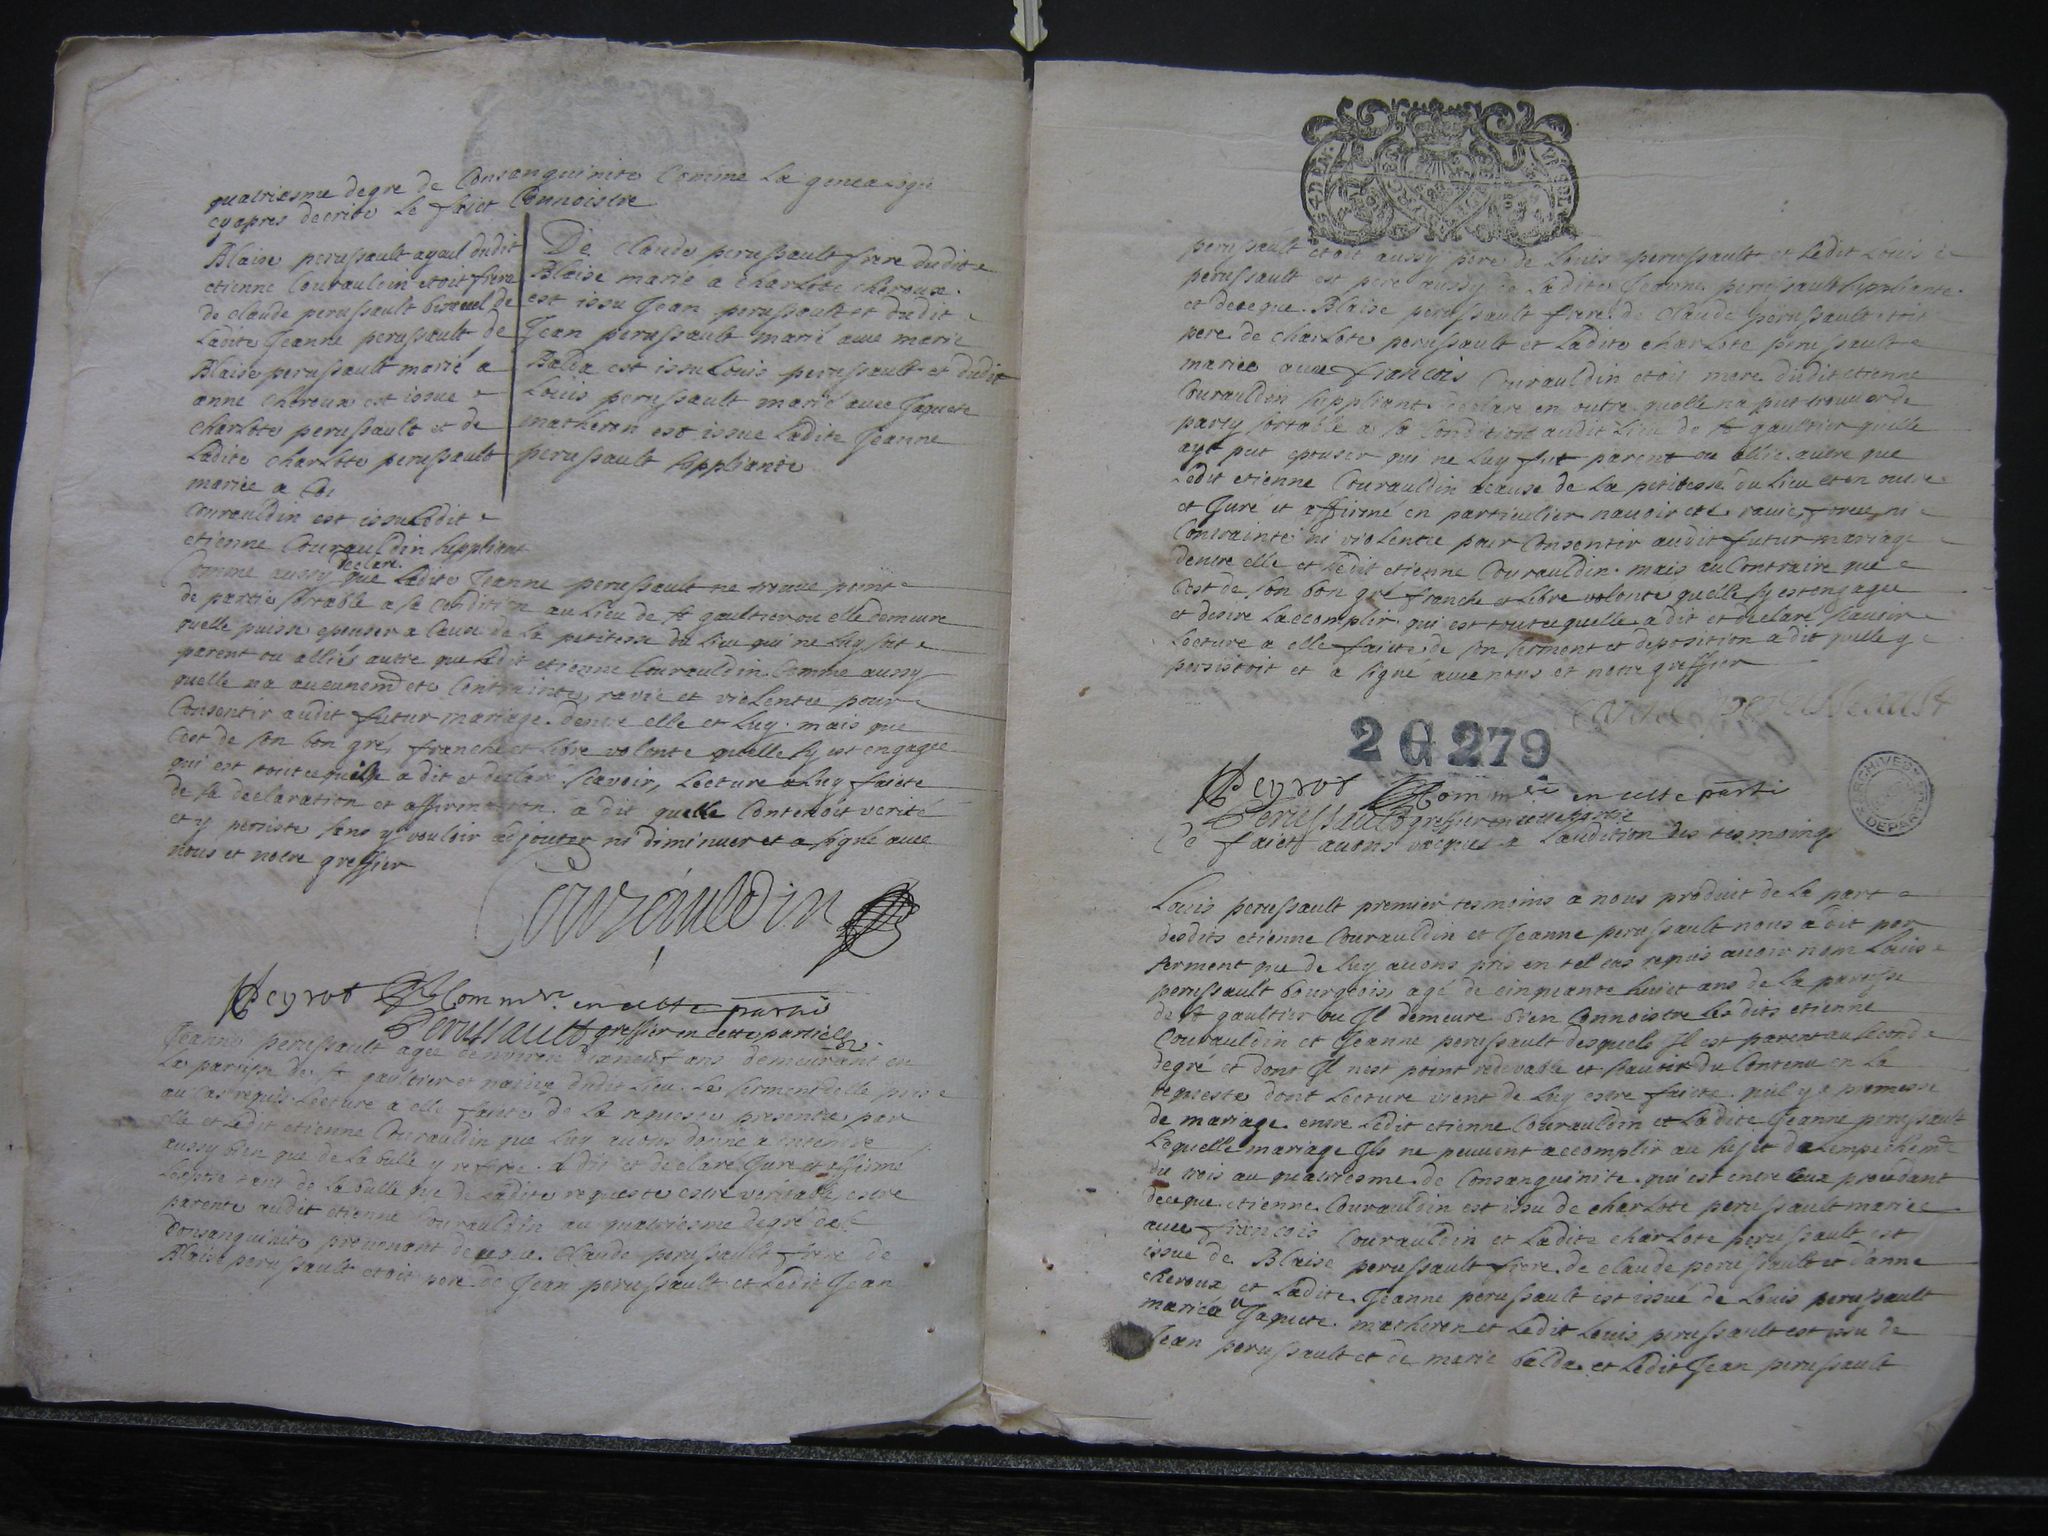 quatriesme degre de Consanguinite Comme La genealogie
cy apres decrite le faict Connoistre
Blaise perussault ayeul dudit
etienne Courauldin etoit frere
de claude perussault bisayeul de
Ladite Jeanne perussault de
Blaise perussault marié a
anne cheroux est issue
charlote perussault et de
Ladite charlotte perussault
mariée a
Courauldin est issu Ledit
etienne Courauldin suppliant
De claude perussault frere dudit
Blaise marié a charlote cheroux
est issu Jean perussault et dudit
Jean perussault marié avec marie
Balda est issu Louis perussault et dudit
Louis perussault marié avec Jaquete
matheron est issue Ladite Jeanne
perussault suppliante
declare
Comme aussy que Ladite Jeanne perussault ne trouve point
de partie sortable a sa condition au Lieu de st gaultier ou elle demeure
quelle puisse epouser a Cause de La petitesse du Lieu qui ne Luy soit
parent ou alliés autre que Ledit etienne Courauldin Comme aussy
quelle na aucunemt ete Contrainte, ravie et violentee pour
Consentir audit futur mariage dentre elle et Luy mais que
Cest de son bon gré, franche et Libre volonte quelle sy est engagee
qui est tout ce quelle a dit et declaré scavoir, Lecture a Luy faicte
de sa declaration et affirmation a dit quelle Contenoit verité
et y persiste sans y vouloir adjouter ni diminuer et a signé avec
nous et notre greffier
Courauldin
Peyrot Commre en cette partie
Perussault greffier en cette partie
Jeanne perussault agee denviron dixneuf ans demeurant en
La paroisse de st gaultier et native dudit Lieu Le serment delle pris
au Cas requis Lecture a elle faicte de La requeste presentee par
elle et Ledit etienne Courauldin que Luy avons donné a entendre
aussy bien que de La bulle y referee A dit et declaré Juré et affirmé
Lexposé tant de La bulle que de Ladite requeste estre veritable estre
parente audit etienne Courauldin au quatriesme degré de
Consanguinite provenant de ce que Claude perussault frere de
Blaise perussault etoit pere de Jean perussault et Ledit Jean
perussault etoit aussy pere de Louis perussault et Ledit Louis
perussault est pere aussy de Ladite Jeanne perussault suppliante
et de ce que Blaise perussault frere de Claude perussault etoit
pere de charlote perussault et Ladite charlote perussault
mariee avec françois Courauldin etoit mere dudit etienne
Courauldin suppliant declare en outre quelle na put trouver de
party sortable a sa Condition audit Lieu de st gaultier quelle
ayt put epouser qui ne Luy fut parent ou allié autre que
Ledit etienne Courauldin a cause de La petitesse du Lieu et en outre
et Juré et affirmé en particulier navoir ete ravie forcee ni
Contrainte ni violentée pour Consentir audit futur mariage
dentre elle et Ledit etienne Courauldin mais au Contraire que
Cest de son bon gré franche et Libre volonte quelle sy est engagee
et desire Laccomplir qui est tout ce quelle a dit et declaré scavoir
Lecture a elle faicte de son serment et deposition a dit quelle y
persistoit et a signé avec nous et notre greffier
perussault
2 G 279
Peyrot Commre en cette partie
Perussault greffier en cette partie
Ce faict avons vacqués a Laudition des tesmoings
ARCHIVES DEPAR
Louis perussault premier tesmoins a nous produit de La part
desdits etienne Courauldin et Jeanne perussault nous a dit par
serment que de Luy avons pris en tel cas requis avoir nom Louis
perussault bourgeois agé de cinquante huict ans de La paroisse
de st gaultier ou Il demeure bien Connoistre Les dits etienne
Courauldin et Jeanne perussault desquels Il est parent au second
degré et dont Il nest point redevable et scavoir du Contenu en La
requeste dont Lecture vient de Luy estre faicte quil y a promesse
de mariage entre Ledit etienne Courauldin et Ladite Jeanne perussault
Lequelle mariage Ils ne peuvent accomplir au sujet de Lempechemt
du trois au quatriesme de Consanguinite qui est entre eux procedant
de ce que etienne Courauldin est issu de charlote perussault mariee
avec françois Courauldin et Ladite charlote perussault est
issue de Blaise perussault frere de claude perussault et danne
cheroux et Ladite Jeanne perussault est issue de Louis perussault
marié a Jaquete matheron et Ledit Louis perussault est issu de
Jean perussault et de marie balda et Ledit Jean perussault